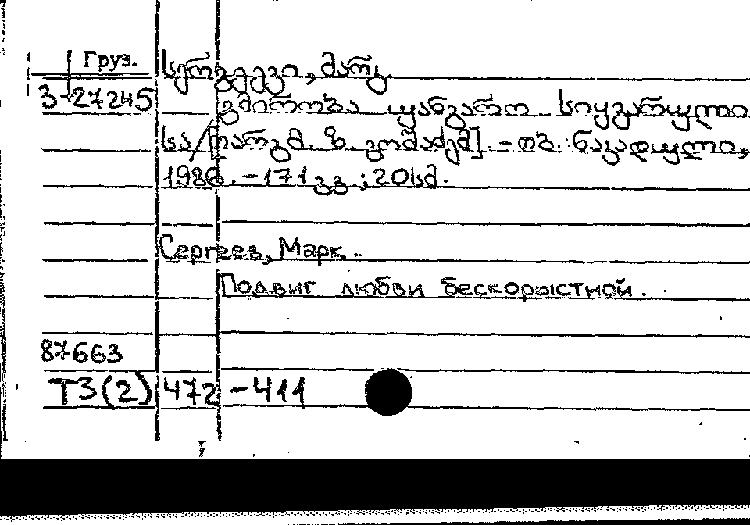 Груз. სერგეევი, მარკ.
3-27245 გმირობა უანგარო სიყვარული
სა/ [თარგმ. ზ. გოშაძემ]. - თბ.: ნაკადული,
1986. - 171 გვ.; 20სმ.
Сергеев, Марк.
Подвиг любви бескорыстной.
87663
Т3(2)472-411